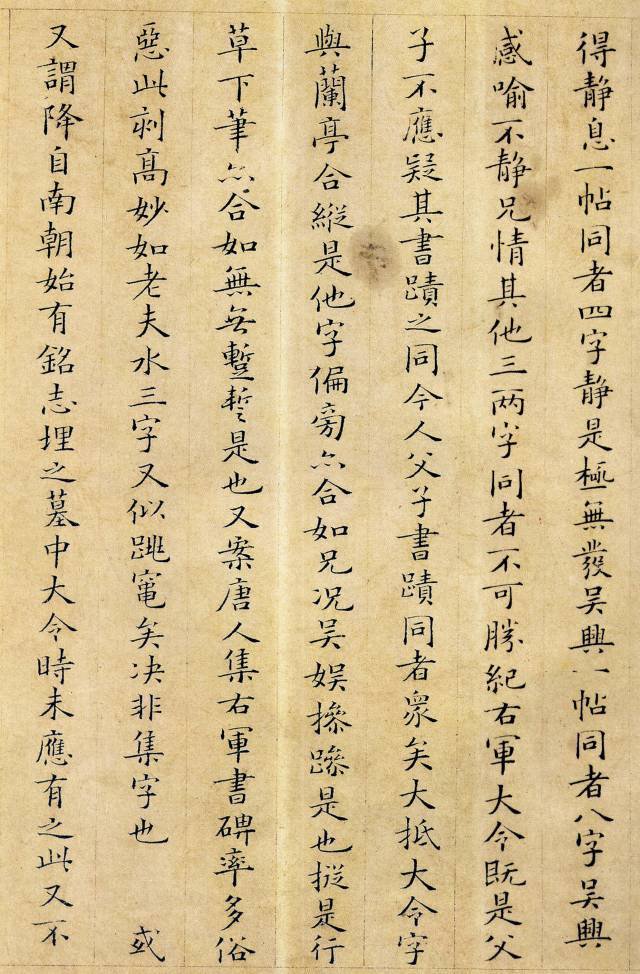 得静息一帖同者四字静是極無發吴興一帖同者八字吴興
感喻不静兄情其他三两字同者不可勝紀右軍大令既是父
子不應疑其書蹟之同今人父子書蹟同者衆矣大抵大令字
與蘭亭合縱是他字偏旁亦合如兄况吴娱摻蹘是也搃是行
草下筆亦合如無无蹔誓是也又案唐人集右軍書碑率多俗
惡此刻高妙如老夫水三字又似跳竄矣决非集字也 或
又謂降自南朝始有銘志埋之墓中大令時未應有之此又不